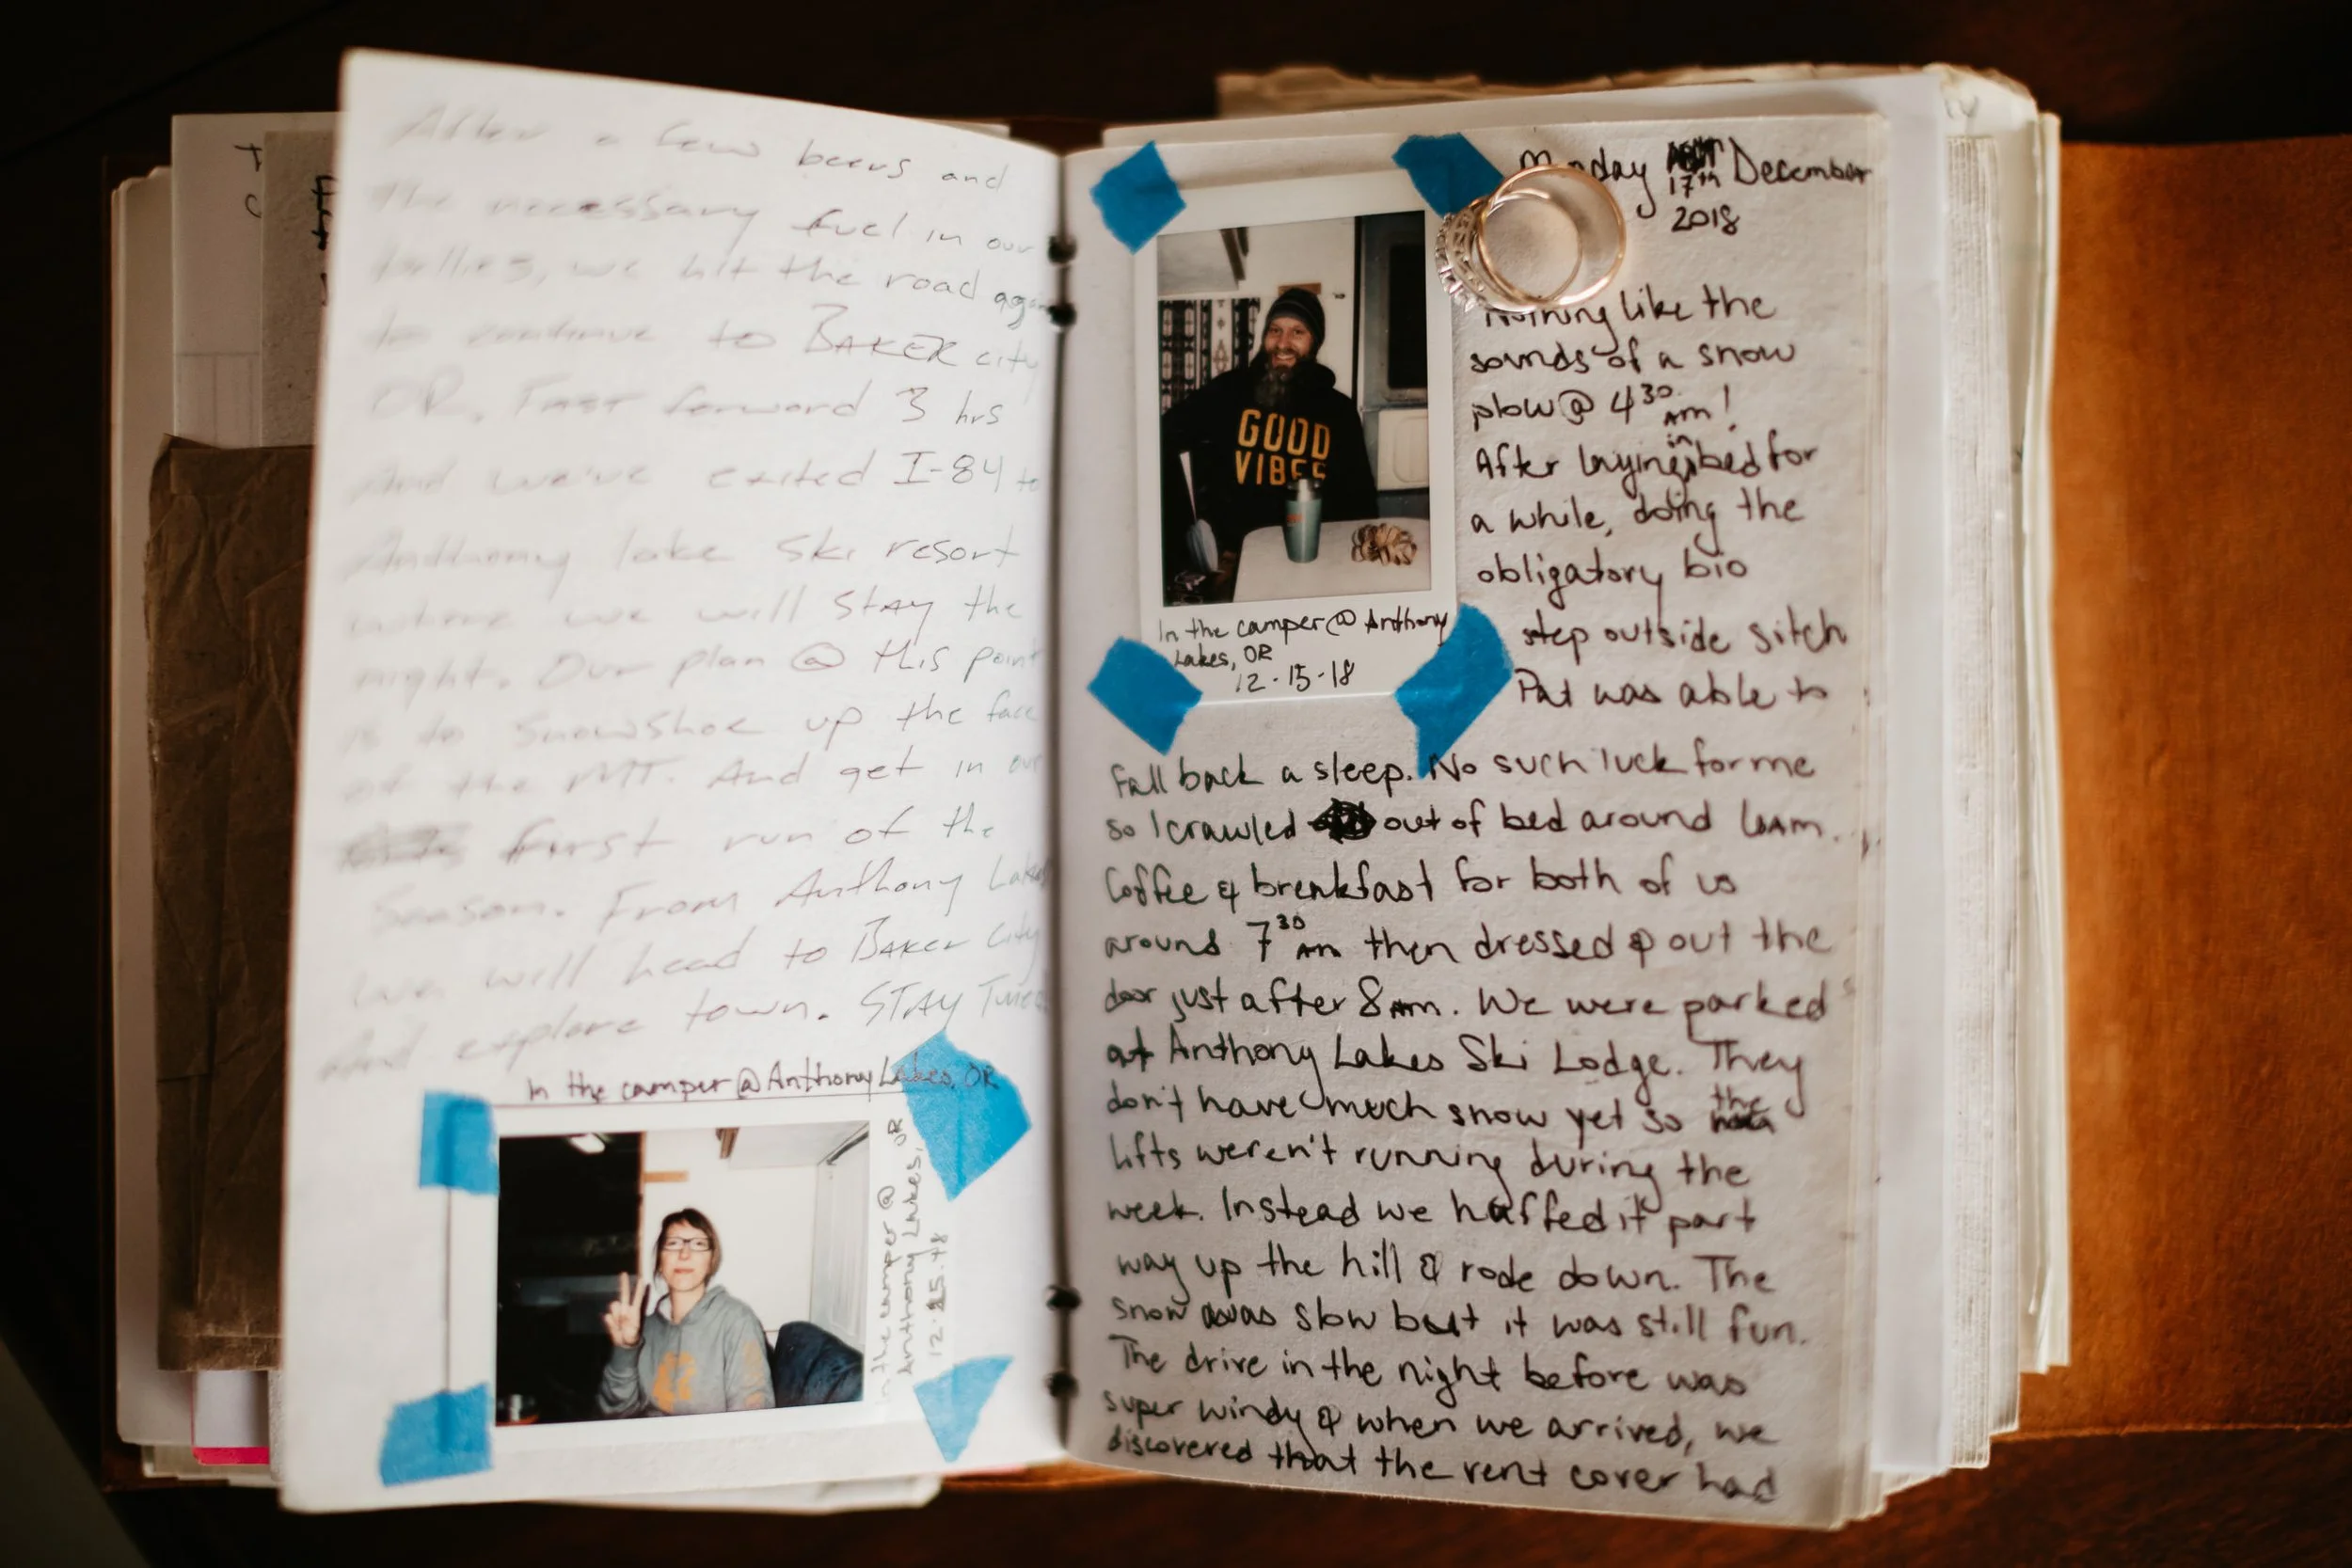 After a few beers and
the necessary fuel in our
bellies, we hit the road again
to continue to BAKER city
OR. Fast forward 3 hrs
And we've exited I-84 to
Anthony lake ski resort
where we will stay the
night. Our plan @ this point
is to snowshoe up the face
of the MT. And get in our
first run of the
Season. From Anthony Lakes
we will head to BAKER City
And explore town. STAY Tuned
In the camper @ Anthony Lakes, OR
In the camper @
Anthony Lakes, OR
12.15.18
Monday 17th December
2018
GOOD
VIBES
In the camper @ Anthony
Lakes, OR
12.15.18
Nothing like the
sounds of a snow
plow @ 4 30 Am!
After laying in bed for
a while, doing the
obligatory bio
step outside sitch
Pat was able to
fall back a sleep. No such luck for me
so I crawled out of bed around 6Am.
Coffee & breakfast for both of us
around 7 30 Am then dressed & out the
door just after 8 Am. We were parked
at Anthony Lakes Ski Lodge. They
don't have much snow yet so the
lifts weren't running during the
week. Instead we huffed it part
way up the hill & rode down. The
snow was slow but it was still fun.
The drive in the night before was
super windy & when we arrived, we
discovered that the vent cover had